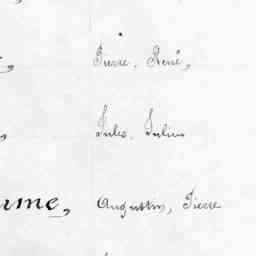 Pierre, René,
Jules, Julien
ume, Augustin, Pierre